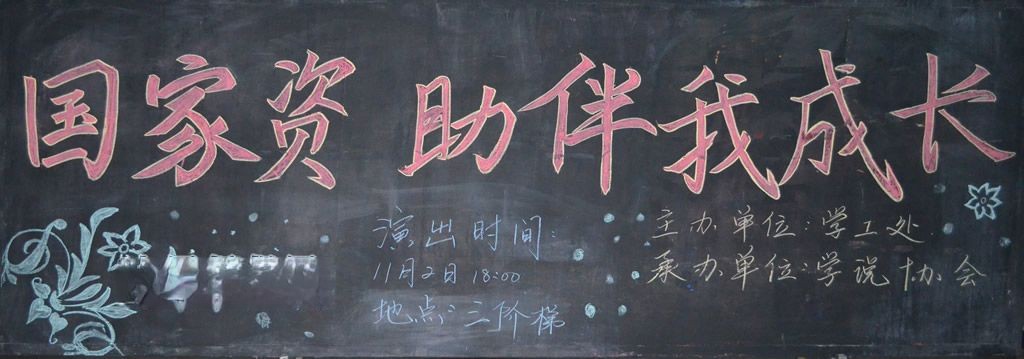 国家资助伴我成长
演出时间:
11月2日 18:00
地点:三阶梯
主办单位:学工处
承办单位:学说协会